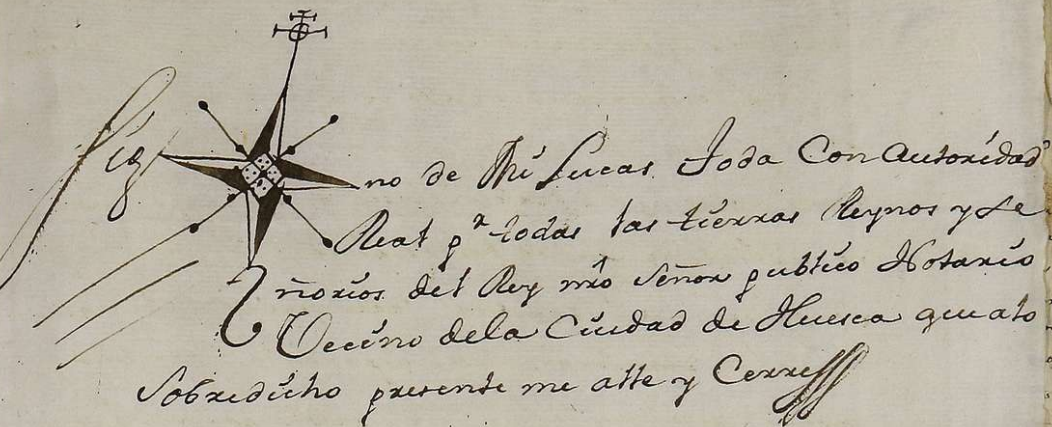 Sig no de Mi Lucas Joda Con Autoridad
Real pr todas las tierras Reynos y Se
ñorios del Rey nro Señor publico Notario
Vecino dela Ciudad de Huesca que a lo
Sobredicho presente me alle y Cerre